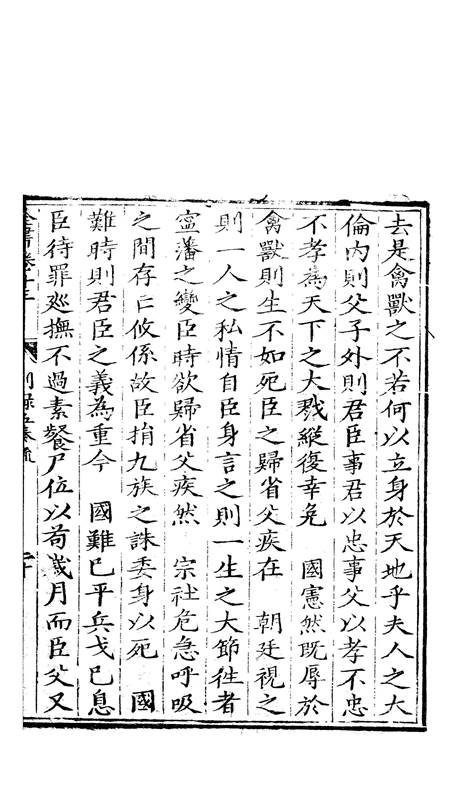 去是禽獸之不若何以立身於天地乎夫人之大
倫内則父子外則君臣事君以忠事父以孝不忠
不孝為天下之大戮縱復幸免　國憲然既辱於
禽獸則生不如死臣之歸省父疾在　朝廷視之
則一人之私情自臣身言之則一生之大節徃者
寧藩之變臣時欲歸省父疾然　宗社危急呼吸
之間存亡攸係故臣捐九族之誅委身以死　國
難時則君臣之義為重今　國難已平兵戈已息
臣待罪廵撫不過素餐尸位以苟歲月而臣父又
全書卷十三
别録五奏疏
二十